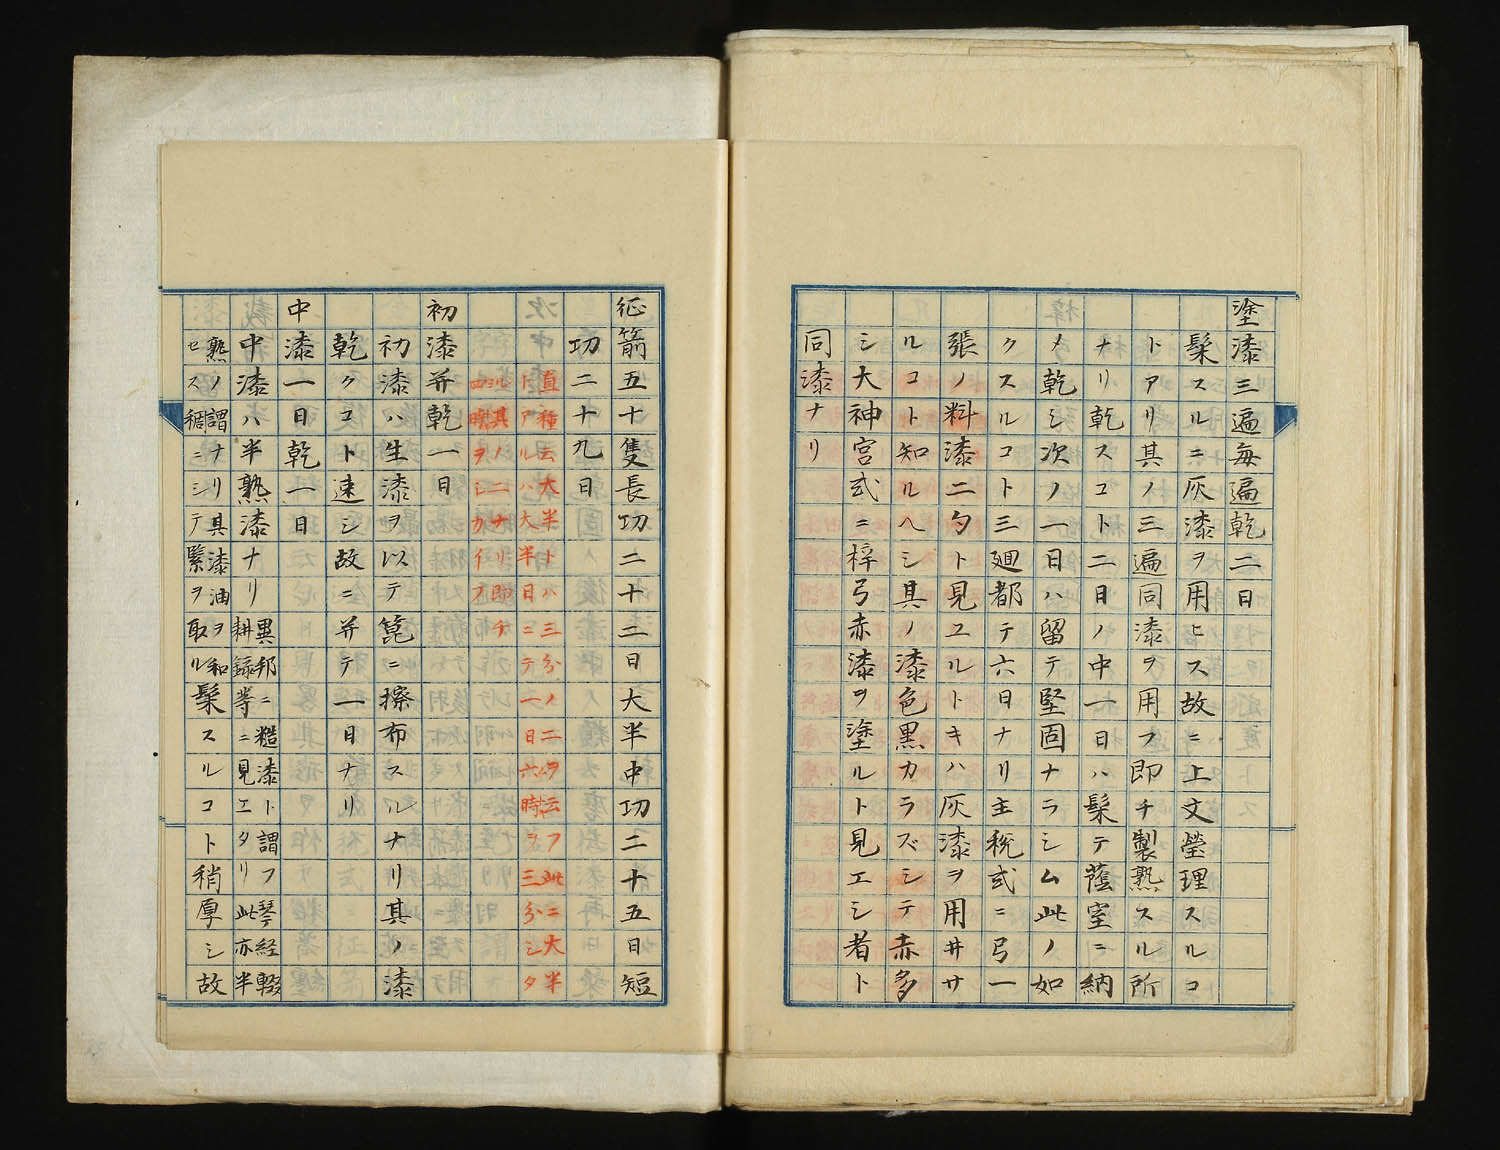 塗漆三遍毎遍乾二日
髹スルニ灰漆ヲ用ヒス故ニ上文瑩理スルコ
トアリ其ノ三遍同漆ヲ用フ即チ製熟スル所
ナリ乾スコト二日ノ中一日ハ髹テ蔭室ニ納
メ乾シ次ノ一日ハ留テ堅固ナラシム此ノ如
クスルコト三廻都テ六日ナリ主税式ニ弓一
張ノ料漆二勺ト見ユルトキハ灰漆ヲ用井サ
ルコト知ルヘシ具ノ漆色黒カラズシテ赤多
シ大神宮式ニ梓弓赤漆ヲ塗ルト見エシ者ト
同漆ナリ
征箭五十隻長功二十二日大半中功二十五日短
功二十九日
直種云大半トハ三分ノ二ヲ云フ此ニ大半
トアルハ大半日ニテ一日六時ヲ三分シタ
ル其ノ二ナリ即チ
四時ヲシカイフ
初漆并乾一日
初漆ハ生漆ヲ以テ箆ニ擦布スルナリ其ノ漆
乾クコト速シ故ニ并テ一日ナリ
中漆一日乾一日
中漆ハ半熟漆ナリ異邦ニ糙漆ト謂フ琴経輟
耕録等ニ見エタリ此亦半
熟ノ謂ナリ具漆油ヲ和
セス稠ニシテ緊ヲ取ル髹スルコト稍厚シ故